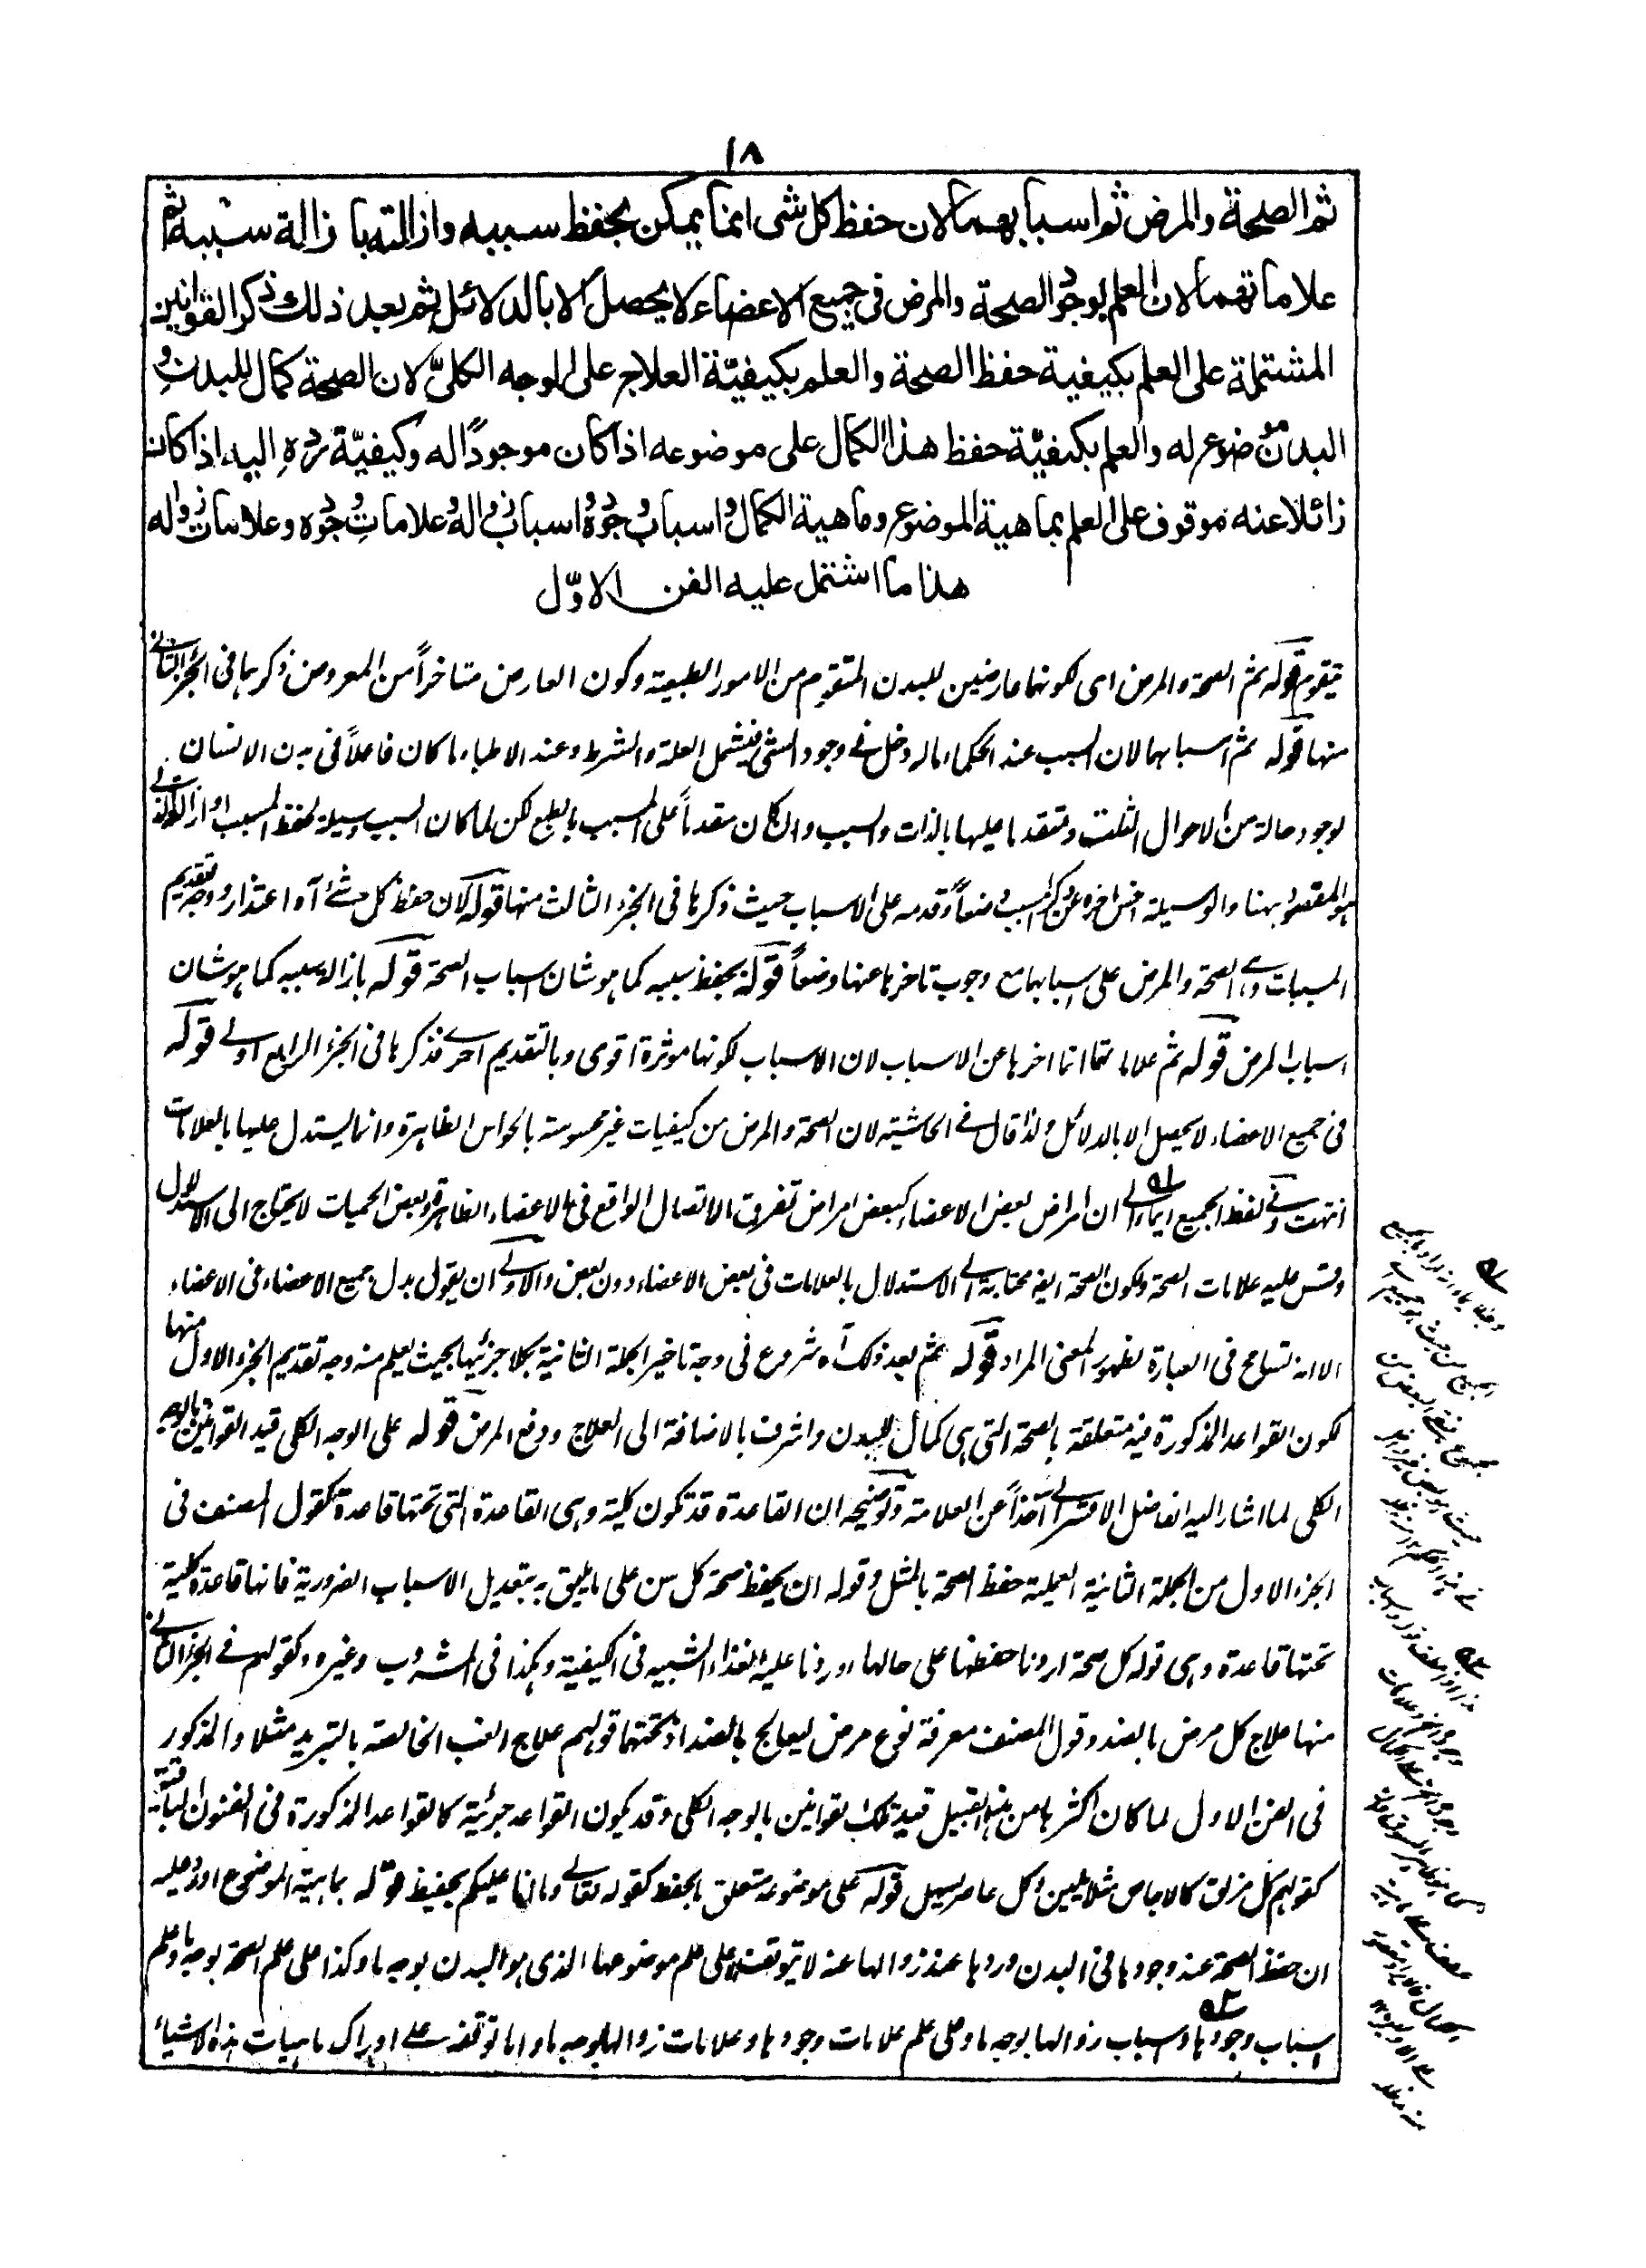 ١٨
ثم الصحة والمرض ثم اسبابهما لان حفظ كل شى انما يمكن بحفظ سببه وازالته بازالة سببه ثم
علاماتهما لان العلم بوجود الصحة والمرض فى جميع الاعضاء لا يحصل الا بالدلائل ثم بعد ذلك ذكر القوانين
المشتملة على العلم بكيفية حفظ الصحة والعلم بكيفيّة العلاج على الوجه الكلىّ لان الصحة كمال للبدن و
البدن موضوع له والعلم بكيفيّة حفظ هذا الكمال على موضوعه اذا كان موجودًا له وكيفيّة ردهِ اليه اذا كان
زائلا عنه موقوف على العلم بماهية الموضوع وماهية الكمال و اسباب وجوده و اسباب زواله و علاماتِ وجوده وعلامات زواله
هذا ما اشتمل عليه الفن الاوّل
قوله ثم الصحة والمرض اى لكونهما عارضين للبدن المتقوم من الامور الطبيعية وكون العارض متاخراً من المعروض ذكرها فى الجزء الثانى
منها قوله ثم اسبابهما لان السبب عند الحكماء ماله دخل فى وجود الشئ فيشمل العلة والشرط وعند الاطباء ما كان فاعلاً فى بدن الانسان
لوجود حالة من الاحوال الثلث ومتقدما عليها بالذات والسبب وان كان مقدماً على المسبب بالطبع لكن لما كان السبب وسيلة لحفظ المسبب او ازالته
هو المقصود ههنا والوسيلة اخس اخره عن ذكر المسبب وضعاً وقدمه على الاسباب حيث ذكرها فى الجزء الثالث منها قوله لان حفظ كل شئ آه اعتذار ووجه تقديم
المسببات وهى الصحة والمرض على اسبابها مع وجوب تاخرها عنها وضعاً قوله بحفظ سببه كما هو شان اسباب الصحة قوله بازالة سببه كما هو شان
اسباب المرض قوله ثم علاماتهما انما اخرها عن الاسباب لان الاسباب لكونها موثرة اقوى وبالتقديم احرى فذكرها فى الجزء الرابع اولى قوله
فى جميع الاعضاء لا يحصل الا بالدلائل ولذا قال فى الحاشية لان الصحة والمرض من كيفيات غير محسوسة بالحواس الظاهرة وانما يستدل عليها بالعلامات
انتهت وفى لفظ الجميع ايماء الى ان امراض بعض الاعضاء كبعض امراض تفرق الاتصال الواقع فى الاعضاء الظاهرة وبعض الحميات لا يحتاج الى الاستدلال
وقس عليه علامات الصحة ولكون الصحة ايضا محتاجة الى الاستدلال بالعلامات فى بعض الاعضاء دون بعض والاولى ان يقول بدل جميع الاعضاء فى الاعضاء
الا انه تسامح فى العبارة لظهور المعنى المراد قوله ثم بعد ذلك آه شروع فى وجه تاخير الجملة الثانية بكلا جزئيها بحيث يعلم منه وجه تقديم الجزء الاول منها
لكون القواعد المذكورة فيه متعلقة بالصحة التى هى كمال للبدن واشرف بالاضافة الى العلاج ودفع المرض قوله على الوجه الكلى قيد القوانين بالوجه
الكلى لما اشار اليه الفاضل الاقسرائى آخذاً عن العلامة وتوضيحه ان القاعدة قد تكون كلية وهى القاعدة التى تحتها قاعدة كقول المصنف فى
الجزء الاول من الجملة الثانية العملية حفظ الصحة بالمثل وقوله ان يحفظ صحة كل سن على ما يليق به بتعديل الاسباب الضرورية فانها قاعدة كلية
تحتها قاعدة وهى قوله كل صحة اردنا حفظها على حالها اوردنا عليه الغذاء الشبيه فى الكيفية وهكذا فى المشروب وغيره وكقولهم فى الجزء الثانى
منها علاج كل مرض بالضد وقول المصنف معرفة نوع مرض ليعالج بالضد اذ تحتهما قولهم علاج الغب الخالصة بالتبريد مثلا والمذكور
فى الفن الاول لما كان اكثرها من هذا القبيل قيد تلك القوانين بالوجه الكلى وقد يكون القواعد جزئية كالقواعد المذكورة فى الفنون الباقية
كقولهم كل مزلق كالاجاص مثلا يلين وكل عاصر يسهل قوله على موضوعه متعلق بالحفظ كقوله تعالى وما انا عليكم بحفيظ قوله بماهية الموضوع اورد عليه
ان حفظ الصحة عند وجودها فى البدن وردها عند زوالها عنه لا يتوقف على علم موضوعها الذى هو البدن بوجه ما وكذا على علم الصحة بوجه ما وعلم
اسباب وجودها واسباب زوالها بوجه ما وعلى علم علامات وجودها وعلامات زوالها بوجه ما واما توقفه على ادراك ماهيات هذه الاشياء